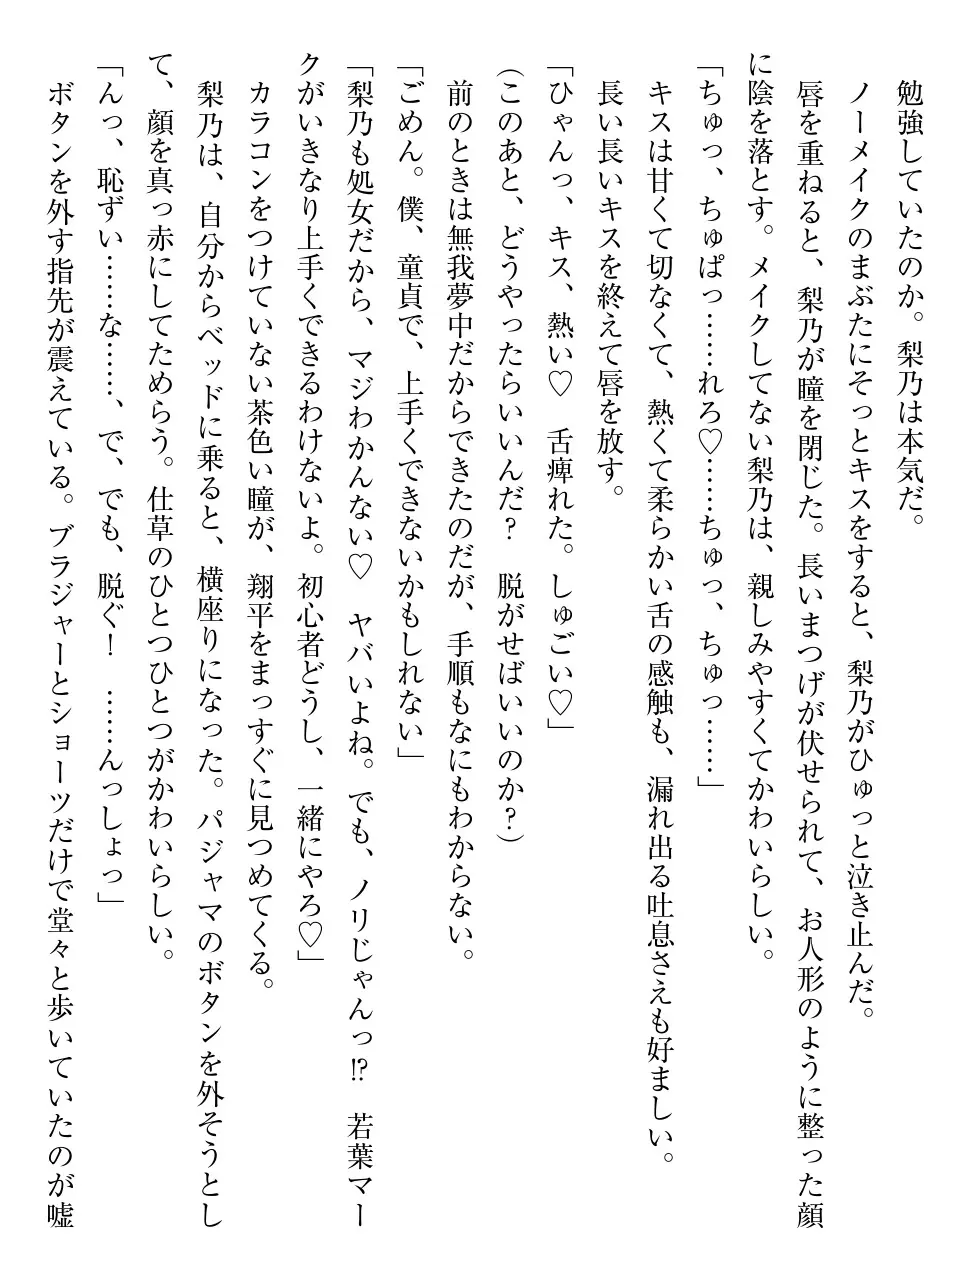 勉強していたのか。梨乃は本気だ。
ノーメイクのまぶたにそっとキスをすると、梨乃がひゅっと泣き止んだ。
唇を重ねると、梨乃が瞳を閉じた。長いまつげが伏せられて、お人形のように整った顔
に陰を落とす。メイクしてない梨乃は、親しみやすくてかわいらしい。
「ちゅっ、ちゅぱっ……れろ♡……ちゅっ、ちゅっ……」
キスは甘くて切なくて、熱くて柔らかい舌の感触も、漏れ出る吐息さえも好ましい。
長い長いキスを終えて唇を放す。
「ひゃんっ、キス、熱い♡　舌痺れた。しゅごい♡」
(このあと、どうやったらいいんだ?　脱がせばいいのか?)
前のときは無我夢中だからできたのだが、手順もなにもわからない。
「ごめん。僕、童貞で、上手くできないかもしれない」
「梨乃も処女だから、マジわかんない♡　ヤバいよね。でも、ノリじゃんっ⁉　若葉マー
クがいきなり上手くできるわけないよ。初心者どうし、一緒にやろ♡」
カラコンをつけていない茶色い瞳が、翔平をまっすぐに見つめてくる。
梨乃は、自分からベッドに乗ると、横座りになった。パジャマのボタンを外そうとし
て、顔を真っ赤にしてためらう。仕草のひとつひとつがかわいらしい。
「んっ、恥ずい……な……、で、でも、脱ぐ!　……んっしょっ」
ボタンを外す指先が震えている。ブラジャーとショーツだけで堂々と歩いていたのが嘘